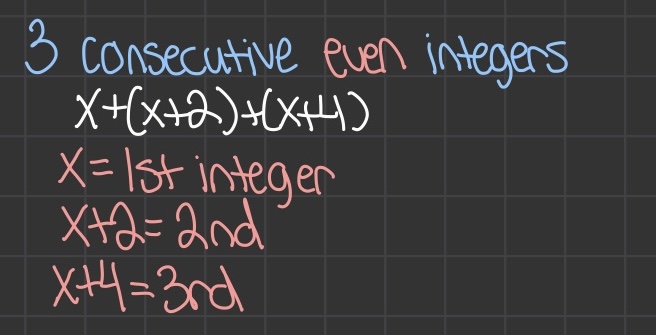 3 consecutive even integers
x+(x+2)+(x+4)
x=1st integer
x+2=2nd
x+4=3rd